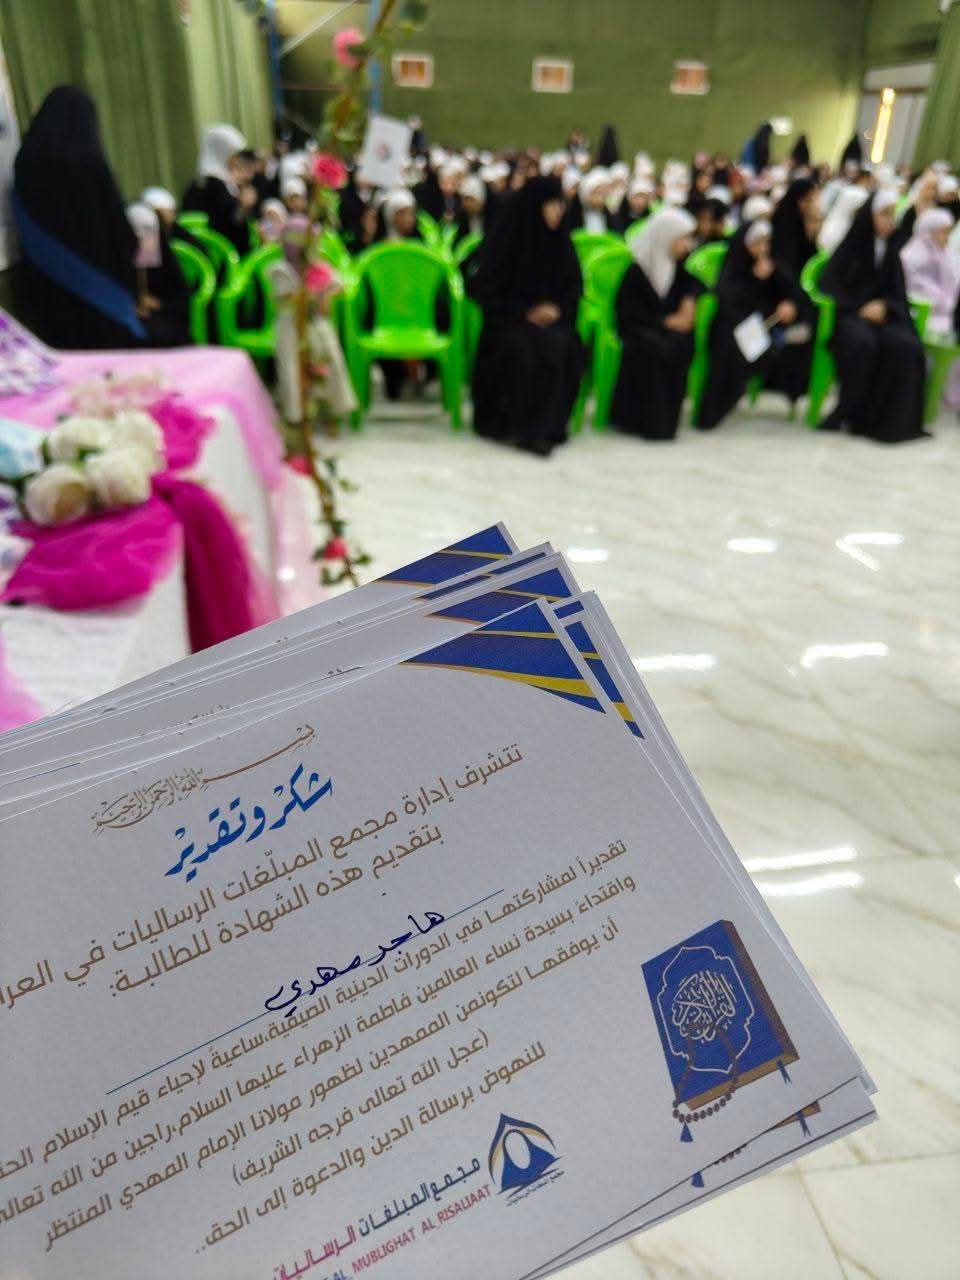 بسم الله الرحمن الرحيم
شكر وتقدير
تتشرف إدارة مجمع المبلّغات الرساليات في
بتقديم هذه الشهادة للطالبة:
هاجر مهدي
تقديراً لمشاركتهـا في الدورات الدينية الصيفية،ساعيةً لإحياء قيم الإسلام
واقتداءً بسيدة نساء العالمين فاطمة الزهراء عليها السلام،راجين من الله تعالى
أن يوفقهـا لتكونمن الممهدين لظهور مولانا الإمام المهدي المنتظر
(عجل الله تعالى فرجه الشريف)
للنهوض برسالة الدين والدعوة إلى الحق..
مجمع المبلغات الرساليات
AL_MUBLIGHAT AL_RISALIAAT
القرآن الكريم